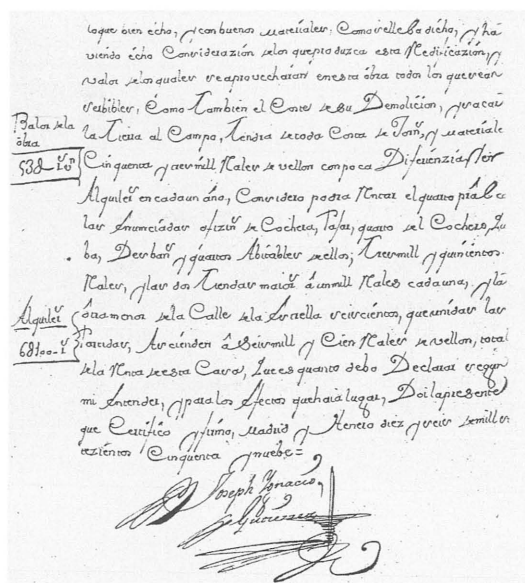 toque bien echo, y con buenos materiales, Como se lleba dicho, y ha
viendo écho Considerazión de los que produzca esta Redificazión, y
valor de los quales se aprovecharan en esta óbra todos los que sean
servibles, Como Tambien el Coste de su Demolicion, y sacar
la Tierra al Campo, Tendra de toda Costa de Jorn.s y materiale
Balor de la
óbra
53U rs vn
Cinquenta y tres mill Reales de vellon con poca Diferenzia, Y el
Alquiler en cada un áno, Considero podra Rentar el quarto pral
las Anunciadas ofizin.s de Cochera, Pajar, quarto del Cochero, Cu
ba, Desban y quartos Abitables de ellos, Tres mill y quinientos
Reales, y las dos Tiendas maiores â un mill Reales cada una, y la
Alquiler
6U100 rs
mas menor de la Calle de la Estrella seiscientos, que unidas las
Partidas, Ascienden â Seis mill y Cien Reales de vellon, total
de la Renta de esta Casa, Que es quanto debo Declarar segun
mi Entender, y para los Efectos que haia lugar, Doi la presente
que Certifico y firmo, Madrid y Henero diez y seis de mill se
tezientos Cinquenta y nuebe =
Joseph Ygnacio